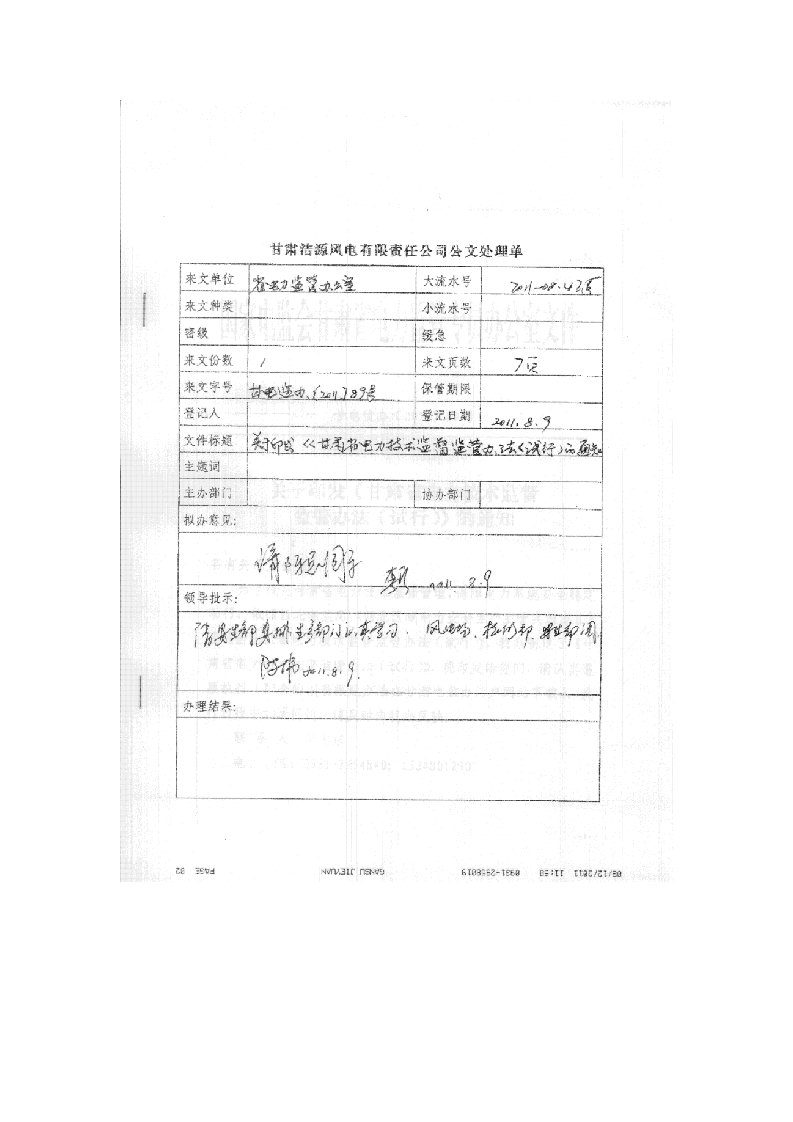 甘肃洁源风电有限责任公司公文处理单
来文单位 省电力监管办公室 大流水号
来文种类 小流水号
密级 缓急
来文份数 1 来文页数 7页
来文字号 甘电监办〔2011〕89号 保管期限
登记人 登记日期 2011.8.9
文件标题 关于印发《甘肃省电力技术监督监管办法(试行)》的通知
主题词
主办部门 协办部门
拟办意见:
8.9
领导批示:
请安生部安排生产部门认真学习、风电场、检修部
2011.8.9.
办理结果:
08/12/2011 11:50 0931-2956019 GANSU JIEYUAN PAGE 02